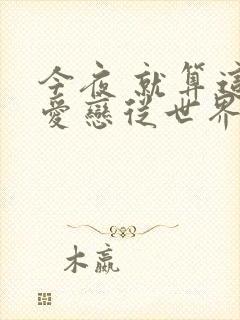 今夜 就算這
愛戀從世界
木嬴